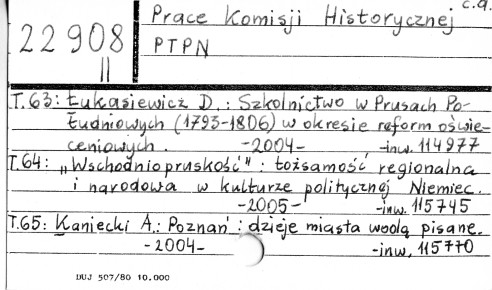 c.d.
Prace Komisji Historycznej
22908
II
PTPN
T.63: Łukasiewicz D.: Szkolnictwo w Prusach Po-
łudniowych (1793-1806) w okresie reform oświe-
ceniowych. -2004- -inw. 114977
T.64: „Wschodniopruskość": tożsamość regionalna
i narodowa w kulturze politycznej Niemiec.
-2005- -inw. 115745
T.65: Kaniecki A.: Poznań: dzieje miasta wodą pisane.
-2004- -inw. 115770
DUJ 507/80 10.000